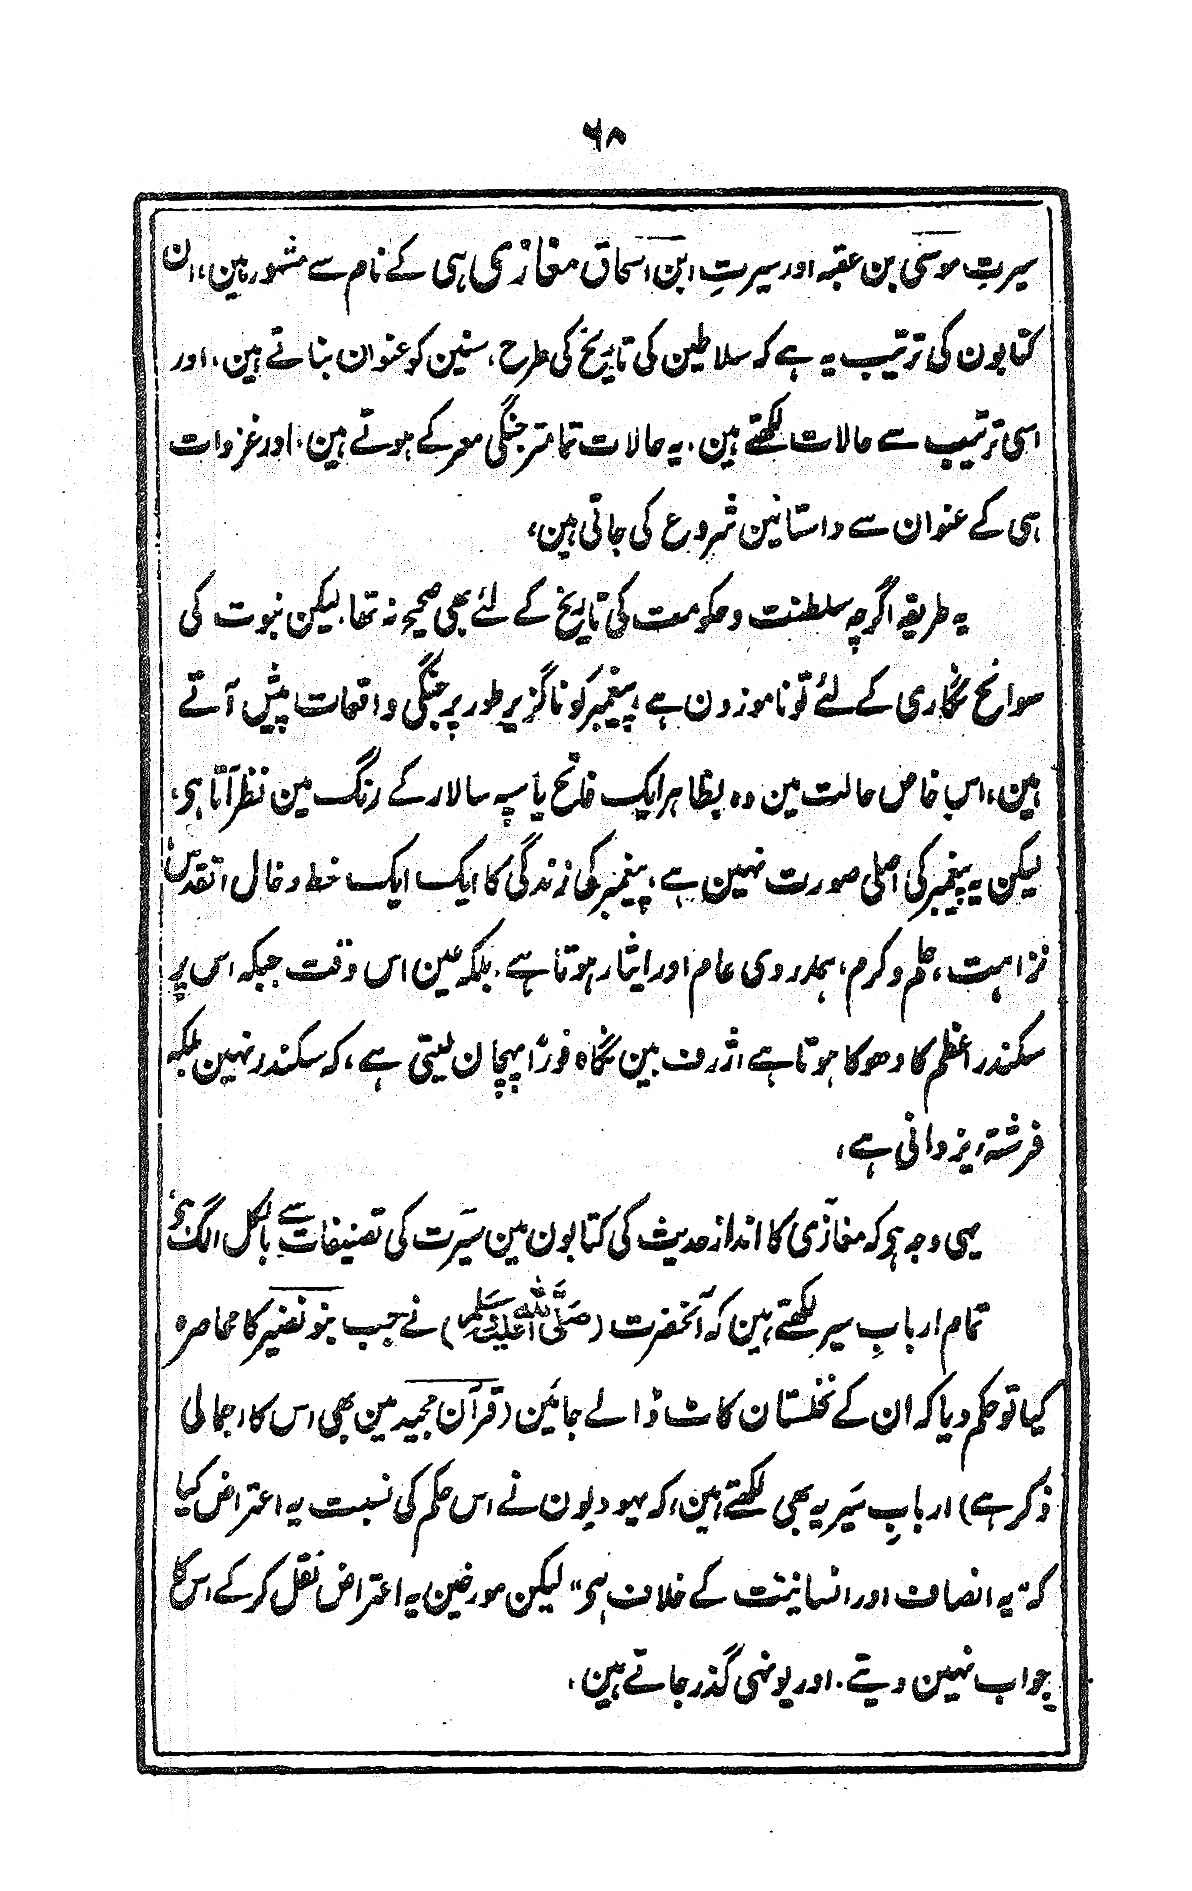 ۶۸
سیرتِ موسیٰ بن عقبہ اور سیرتِ ابن اسحاق مغازی ہی کے نام سے مشہور ہین، ان
کتابون کی ترتیب یہ ہے کہ سلاطین کی تاریخ کی طرح، سنین کو عنوان بناتے ہین، اور
اسی ترتیب سے حالات لکھتے ہین، یہ حالات تمامتر جنگی معرکے ہوتے ہین، اور غزوات
ہی کے عنوان سے داستانین شروع کی جاتی ہین،
یہ طریقہ اگرچہ سلطنت و حکومت کی تاریخ کے لئے بھی صحیح نہ تھا، لیکن نبوت کی
سوانح نگاری کے لئے تو ناموزون ہے، پیغمبر کو ناگزیر طور پر جنگی واقعات پیش آتے
ہین، اس خاص حالت مین وہ بظاہر ایک فاتح یا سپہ سالار کے رنگ مین نظر آتا ہی،
لیکن یہ پیغمبر کی اصلی صورت نہین ہے، پیغمبر کی زندگی کا ایک ایک خط و خال تقدس
نزاہت، حلم و کرم، ہمدردی عام اور ایثار ہوتا ہے، بلکہ عین اس وقت جبکہ اس پر
سکندر اعظم کا دھوکا ہوتا ہے ژرف بین نگاہ فوراً پہچان لیتی ہے، کہ سکندر نہین بلکہ
فرشتہ یزدانی ہے،
یہی وجہ ہی کہ مغازی کا انداز حدیث کی کتابون مین سیرت کی تصنیفات سے بالکل الگ ہی،
تمام اربابِ سیر لکھتے ہین کہ آنحضرت (صلی اللہ علیہ وسلم) نے جب بنو نضیر کا محاصرہ
کیا تو حکم دیا کہ ان کے نخلستان کاٹ ڈالے جائین (قرآن مجید مین بھی اس کا اجمالی
ذکر ہے) اربابِ سیَر یہ بھی لکھتے ہین، کہ یہودیون نے اس حکم کی نسبت یہ اعتراض کیا
کہ "یہ انصاف اور انسانیت کے خلاف ہی" لیکن مورخین یہ اعتراض نقل کرکے اس کا
جواب نہین دیتے، اور یونہی گذر جاتے ہین،